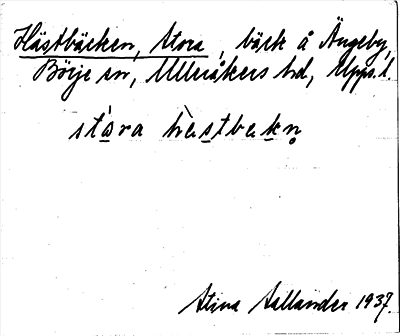 Hästbäcken, Stora, bäck å Ängeby,
Börje sn, Ulleråkers hd, Upps. l.
stóra hὲstbekn̥
Stina Sallander 1937.